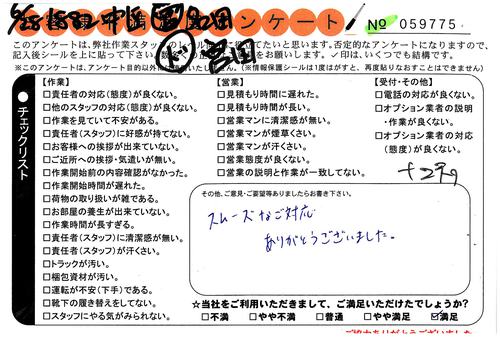 アンケート
№ 059775
このアンケートは、弊社作業スタッフの
たいと思います。否定的なアンケートになりますので、
記入後シールを上に貼って下さい。
をお願いします。✓印は、いくつでも結構です。
※このアンケートは、アンケート目的以外には
(※情報保護シールは1度がはすと、再度貼りなおすことはできません)
チェックリスト
【作業】
□責任者の対応(態度)が良くない。
□他のスタッフの対応(態度)が良くない。
□作業を見ていて不安がある。
□責任者(スタッフ)に好感が持てない。
□お客様への挨拶が出来ていない。
□ご近所への挨拶・気遣いが無い。
□作業開始前の内容確認がなかった。
□作業開始時間が遅れた。
□荷物の取り扱いが雑である。
□お部屋の養生が出来ていない。
□作業時間が長すぎる。
□責任者(スタッフ)に清潔感が無い。
□責任者(スタッフ)が汗くさい。
□トラックが汚い。
□梱包資材が汚い。
□運転が不安(下手)である。
□靴下の履き替えをしてない。
□スタッフにやる気がみられない。
【営業】
□見積もり時間に遅れた。
□見積もり時間が長い。
□営業マンに清潔感が無い。
□営業マンが煙草くさい。
□営業マンが汗くさい。
□営業態度が良くない。
□営業の説明と作業が一致してない。
【受付・その他】
□電話の対応が良くない。
□オプション業者の説明・作業が良くない。
□オプション業者の対応(態度)が良くない。
その他、ご意見・ご要望等ありましたらお書き下さい。
スムーズなご対応
ありがとうございました。
☆当社をご利用いただきまして、ご満足いただけたでしょうか?
□不満 □やや不満 □普通 □やや満足 ☑満足
ご協力ありがとうございました